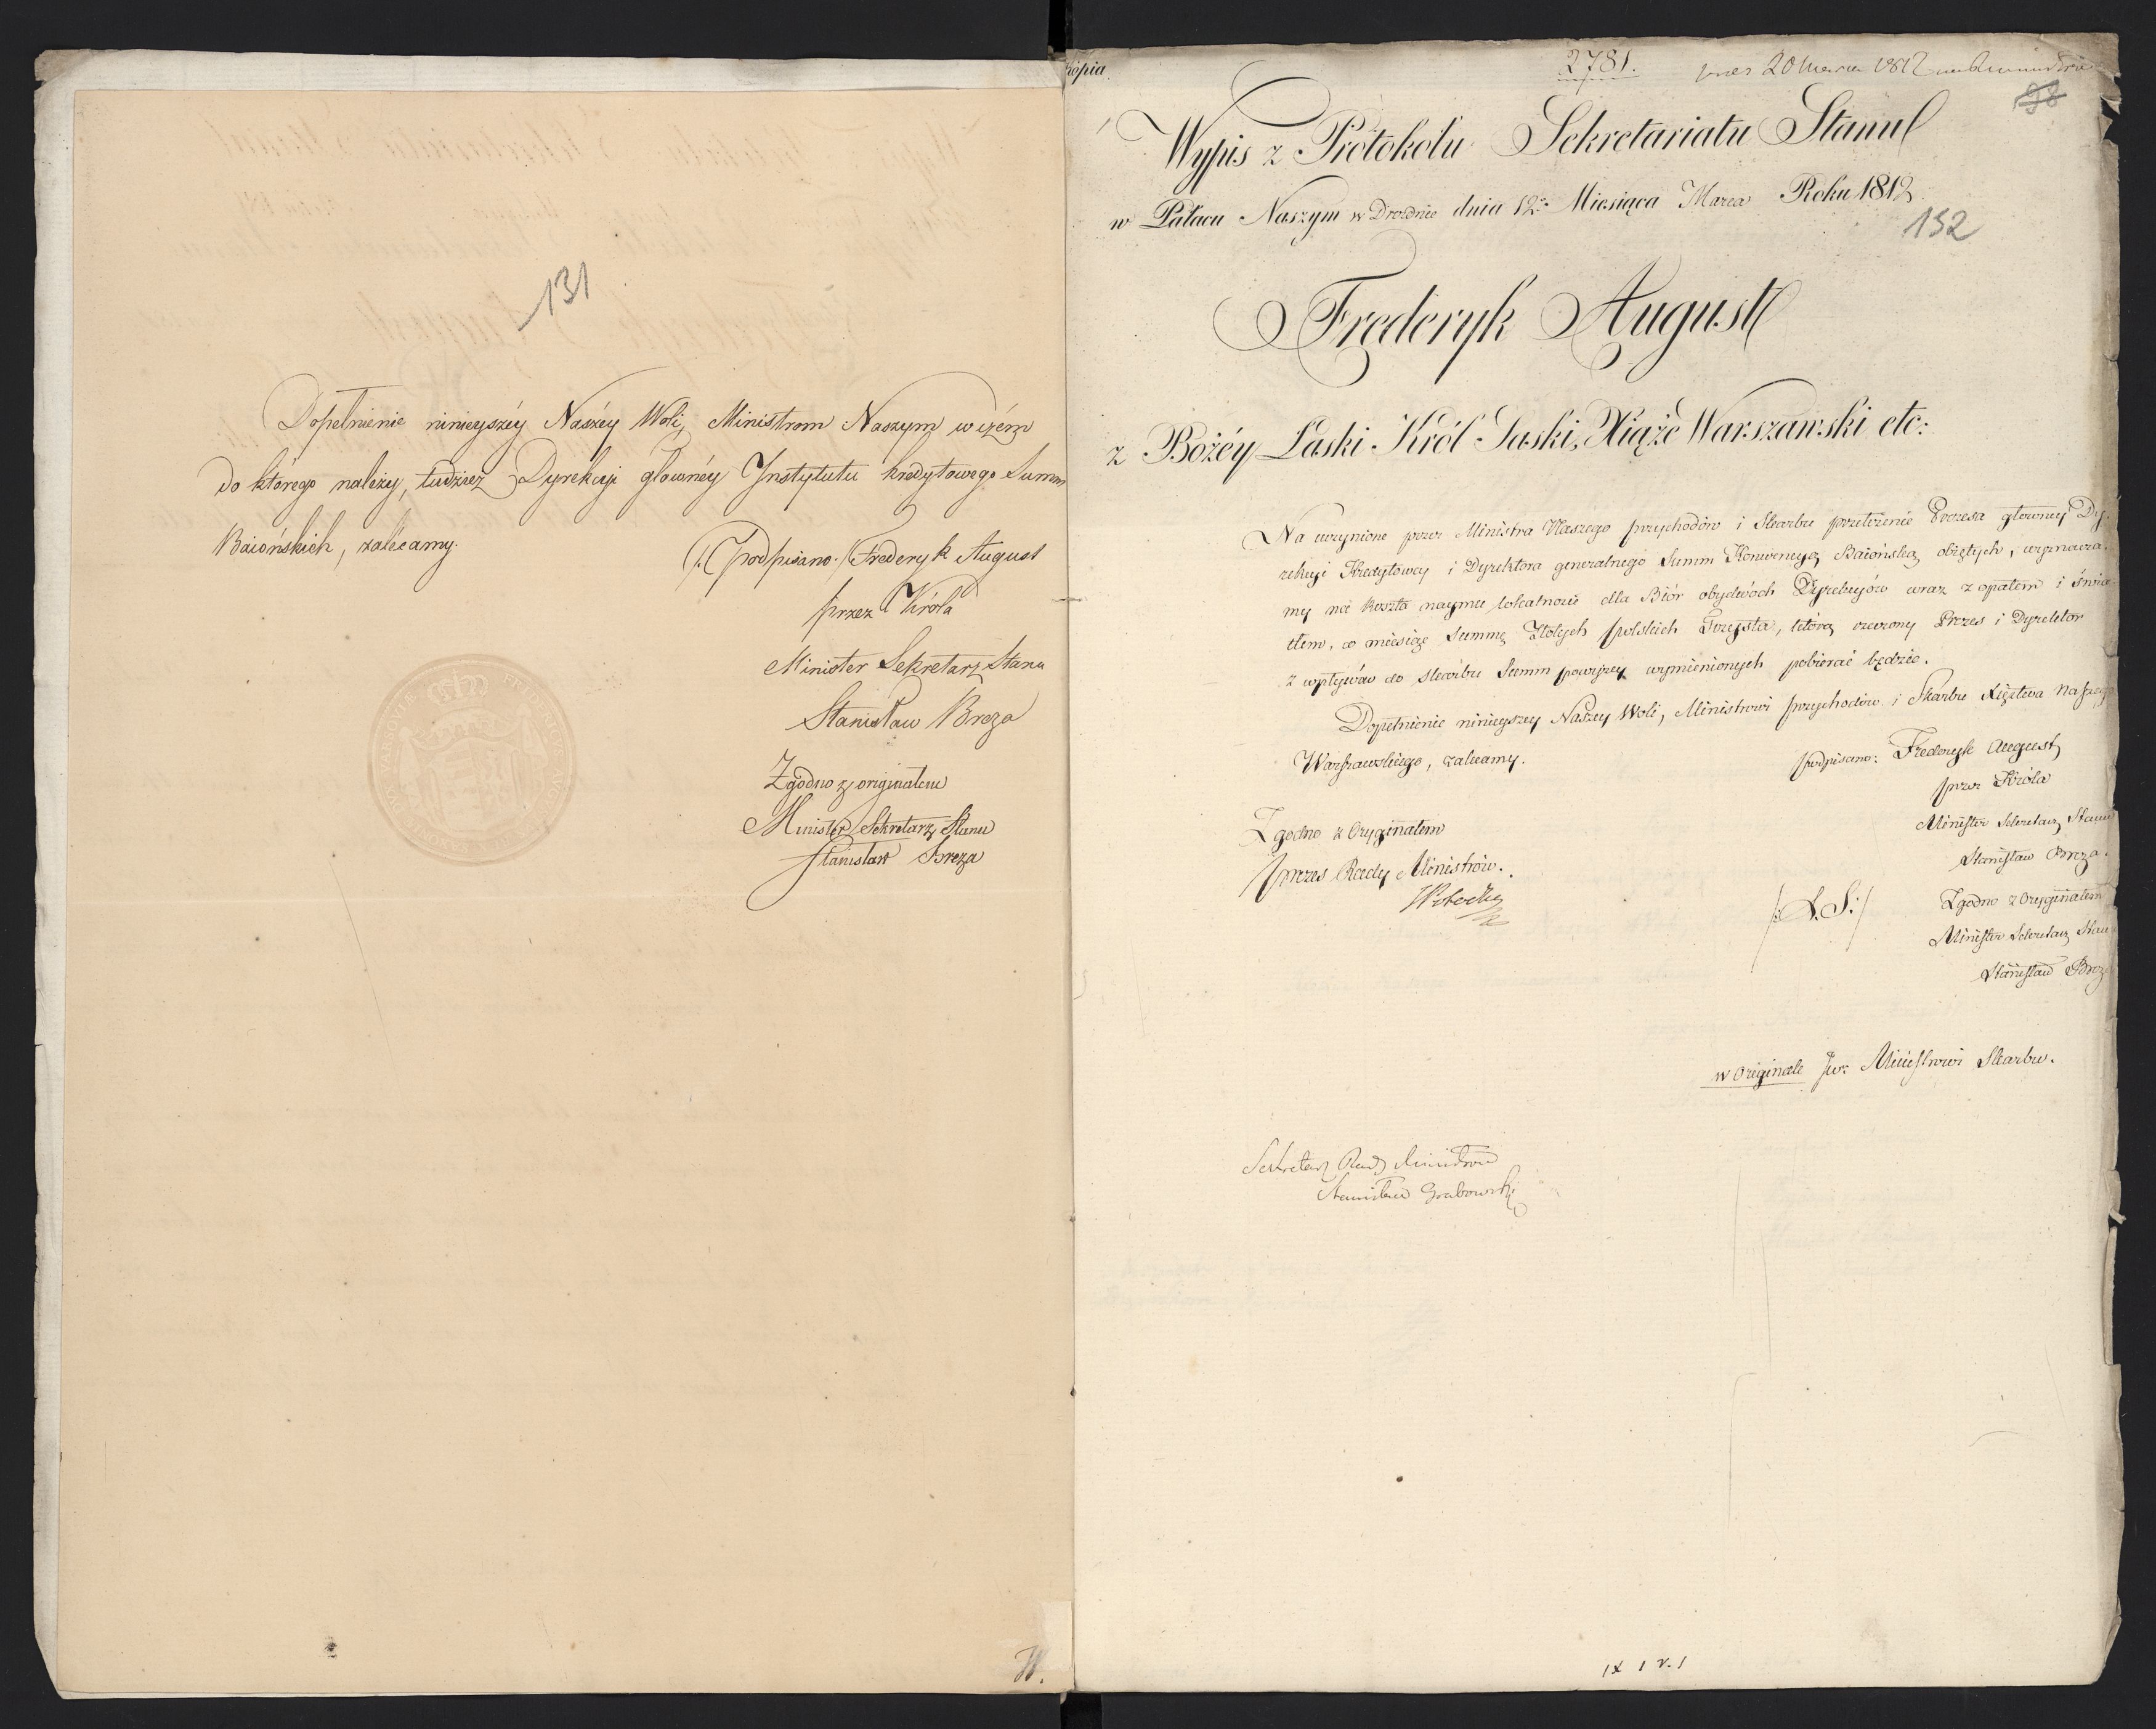 131
Dopełnienie ninieyszéy Naszéy Woli, Ministrom Naszym w czém
do którego należy, tudzież Dyrekcyi głownéy Instytutu kredytowego Summ
Baiońskich, zalecamy.
(podpisano.) Frederyk August
przez Króla
Minister Sekretarz Stanu
Stanisław Breza
Zgodno z originałem
Minister Sekretarz Stanu
Stanisław Breza
Kopia
2781.
20 Marca 1812
98
Wypis z Protokołu Sekretariatu Stanu
w Pałacu Naszym w Dreznie dnia 12. Miesiąca Marca Roku 1812
132
Frederyk August
z Bożéy Łaski Król Saski, Xiążę Warszawski etc:
Na uczynione przez Ministra Naszego przychodów i Skarbu przełożenie Prezesa głowney Dy-
rekcyi Kredytowey i Dyrektora generalnego Summ Konwencyą Baiońską obiętych, wyznacza-
my na koszta naymu lokalności dla Biór obydwóch Dyrekcyów wraz z opałem i świa-
tłem, co miesiąc Summę Złotych polskich Trzysta, którą rzeczony Prezes i Dyrektor
z wpływów do skarbu Summ powyżey wymienionych pobierać będzie.
Dopełnienie ninieyszey Naszey Woli, Ministrowi przychodów i Skarbu Xięstwa Naszego
Warszawskiego, zalecamy.
podpisano: Frederyk August
przez Króla
Minister Sekretarz Stanu
Stanisław Breza.
Zgodno z Oryginałem
Prezes Rady Ministrów.
/: L.S: /
Zgodno z Oryginałem
Minister Sekretarz Stanu
Stanisław Breza
w Originale Jw: Ministrowi Skarbu.
Sekretarz Rady Ministrów
Stanisław Grabowski